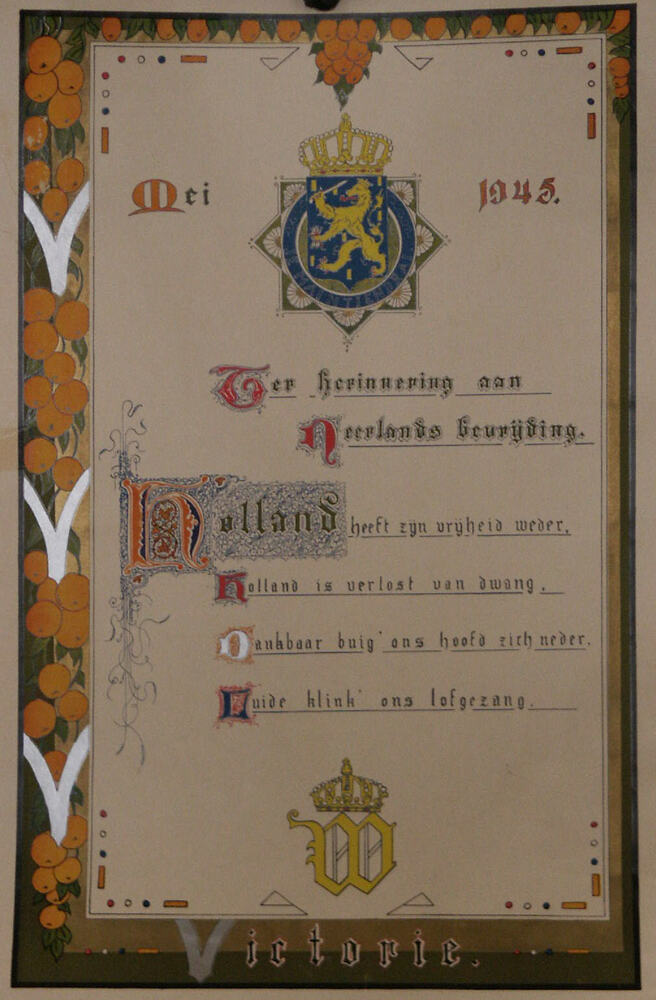 Mei 1945.
JE MAINTIENDRAI
Ter herinnering aan
Neerlands bevrijding.
Holland heeft zijn vrijheid weder,
Holland is verlost van dwang.
Dankbaar buig' ons hoofd zich neder.
Luide klink' ons lofgezang.
W
V
V
V
Victorie.